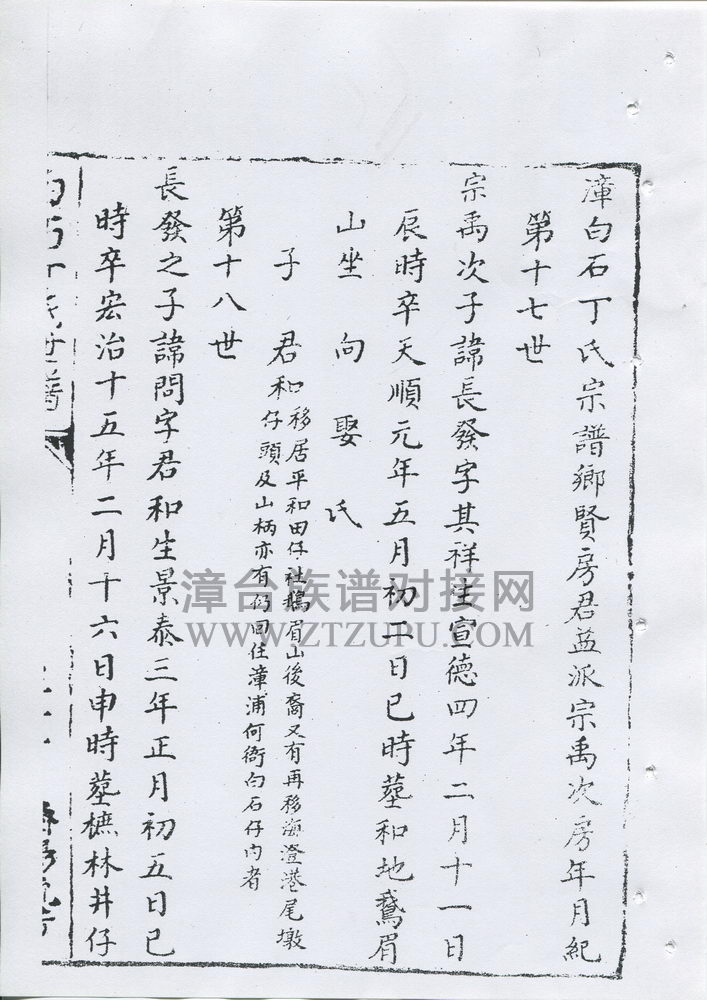 漳白石丁氏宗譜鄉賢房君益派宗禹次房年月紀
第十七世
宗禹次子諱長發字其祥生宣德四年二月十一日
辰時卒天順元年五月初二日巳時墓和地鵞眉
山坐 向 娶 氏
子 君和移居平和田仔社鵝眉山後裔又有再移海澄港尾墩
仔頭及山柄亦有仍回住漳浦何衙白石仔内者
第十八世
長發之子諱問字君和生景泰三年正月初五日巳
時卒宏治十五年二月十六日申時墓樜林井仔
白石丁氏世譜
漳台族谱对接网
WWW.ZTZUPU.COM